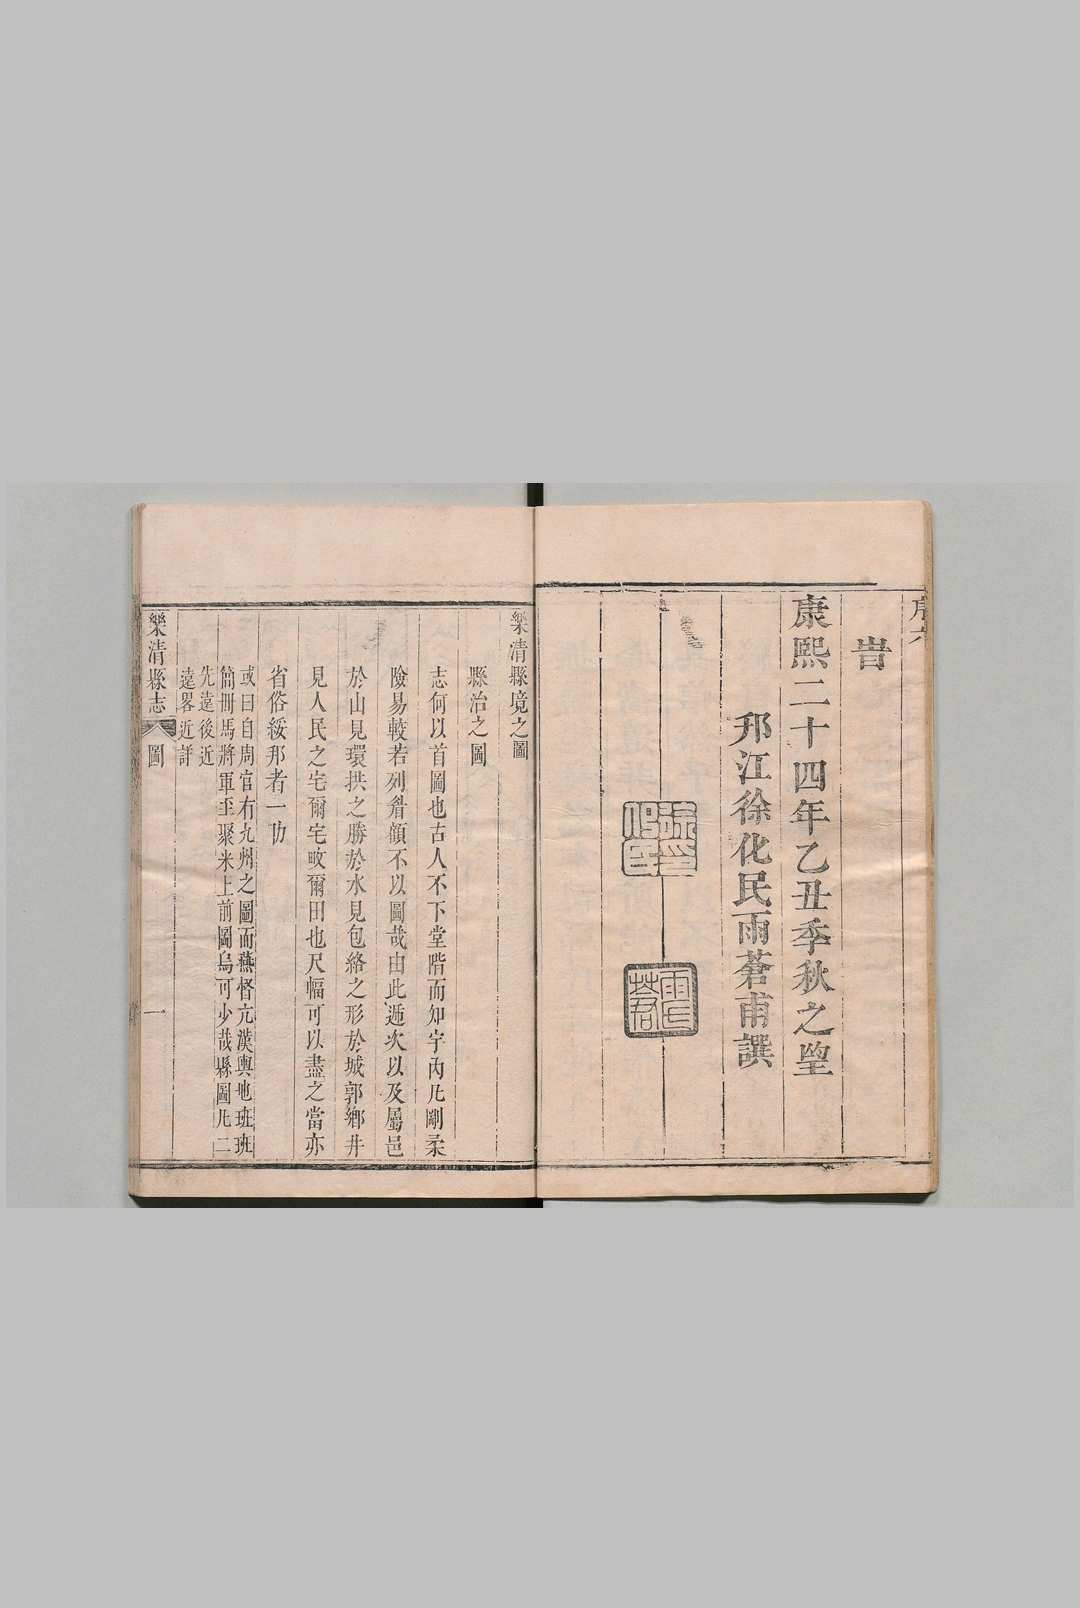 旹
康熙二十四年乙丑季秋之望
邗江徐化民雨蒼甫譔
樂清縣境之圖
縣治之圖
志何以首圖也古人不下堂階而知宇內凡剛柔
險易較若列眉顧不以圖哉由此遞次以及屬邑
於山見環拱之勝於水見包絡之形於城郭鄉井
見人民之宅爾宅畋爾田也尺幅可以盡之當亦
省俗綏邦者一助
或曰自周官有九州之圖而燕督亢漢輿地班班
簡冊馬將軍至聚米上前圖烏可少哉縣圖凡二
先遠後近
遠畧近詳
樂清縣志
圖
一